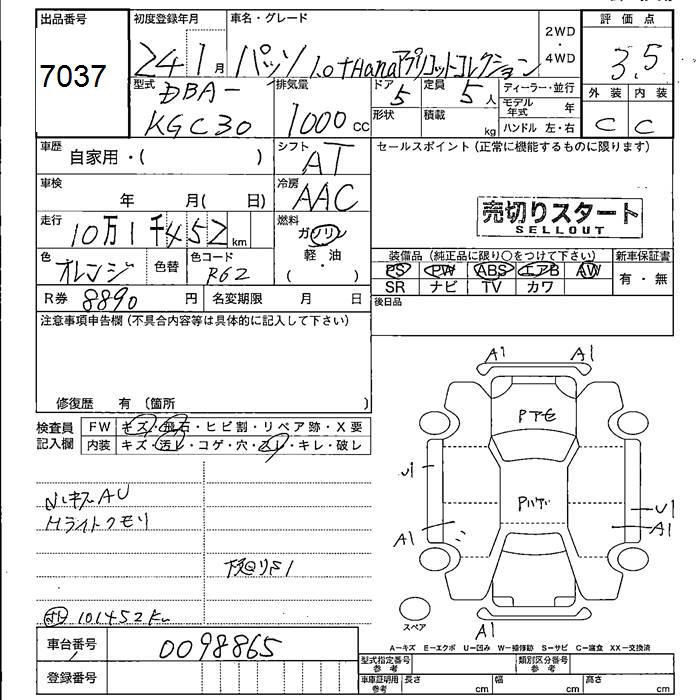 出品番号 初度登録年月 車名・グレード 評価点
7037 24 1月 パッソ 1.0+Hanaアプリコットコレクション 2WD・4WD 3.5
型式 DBA-KGC30 排気量 1000cc ドア 5 定員 5人 ディーラー・並行 外装 内装
形状 積載 kg モデル年式 年 C C
ハンドル 左・右
車歴 自家用・( ) シフト AT セールスポイント(正常に機能するものに限ります)
車検 年 月( 日) 冷房 AAC
売切りスタート
SELLOUT
走行 10万1千452km 燃料 ガソリン 軽油 ( ・ )
装備品(純正品に限り○をつけて下さい) 新車保証書
色 オレンジ 色替 色コード R62 PS PW ABS エアB AW 有・無
SR ナビ TV カワ
R券 8890円 名変期限 月 日 後日品
注意事項申告欄(不具合内容等は具体的に記入して下さい)
修復歴 有 (箇所 )
検査員記入欄 FW キズ・飛石・ヒビ割・リペア跡・X要
内装 キズ・汚レ・コゲ・穴・スレ・キレ・破レ
A1 A1
U1
U1
A1
A1
A1
キズAU
Hライトクモリ
下廻りS1
101452km
スペア
A-キズ E-エクボ U-凹み W-補修跡 S-サビ C-腐食 XX-交換済
車台番号 0098865
登録番号
型式指定番号 参考 類別区分番号 参考
車庫証明用 参考 長さ cm 幅 cm 高さ cm